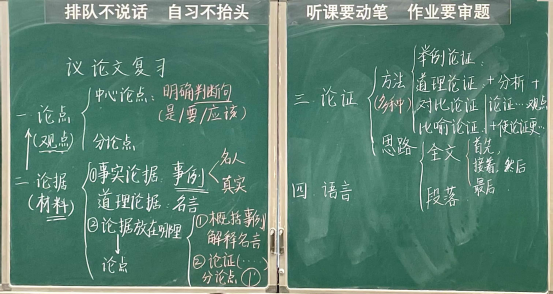 排队不说话 自习不抬头
听课要动笔 作业要审题
议论文复习
一 论点
(观点)
中心论点: 明确判断句
(是/要/应该)
分论点
二 论据
(材料)
①事实论据: 事例
名人
真实
道理论据: 名言
②论据放在哪里
论点
①概括事例
解释名言
②论证(……
分论点①
三 论证
方法
(多种)
举例论证:
道理论证:
对比论证
比喻论证
+分析+
论证…观点
+使论证更…
思路
全文
首先,
接着, 然后
最后
段落
四 语言